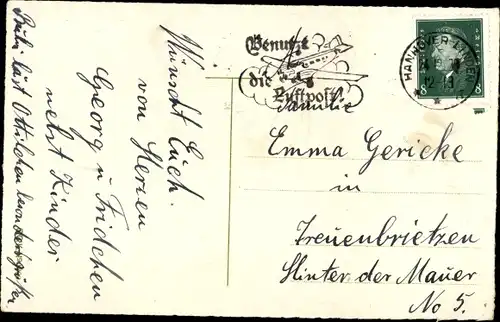 Wünscht Euch
von Herzen
Georg u Fridchen
nebst Kinder
läst Ottilchen besonders grüßen
Benutzt
die
Luftpost!
HANNOVER-LINDEN
8
8
Familie
Emma Gericke
in
Treuenbrietzen
Hinter der Mauer
No 5.